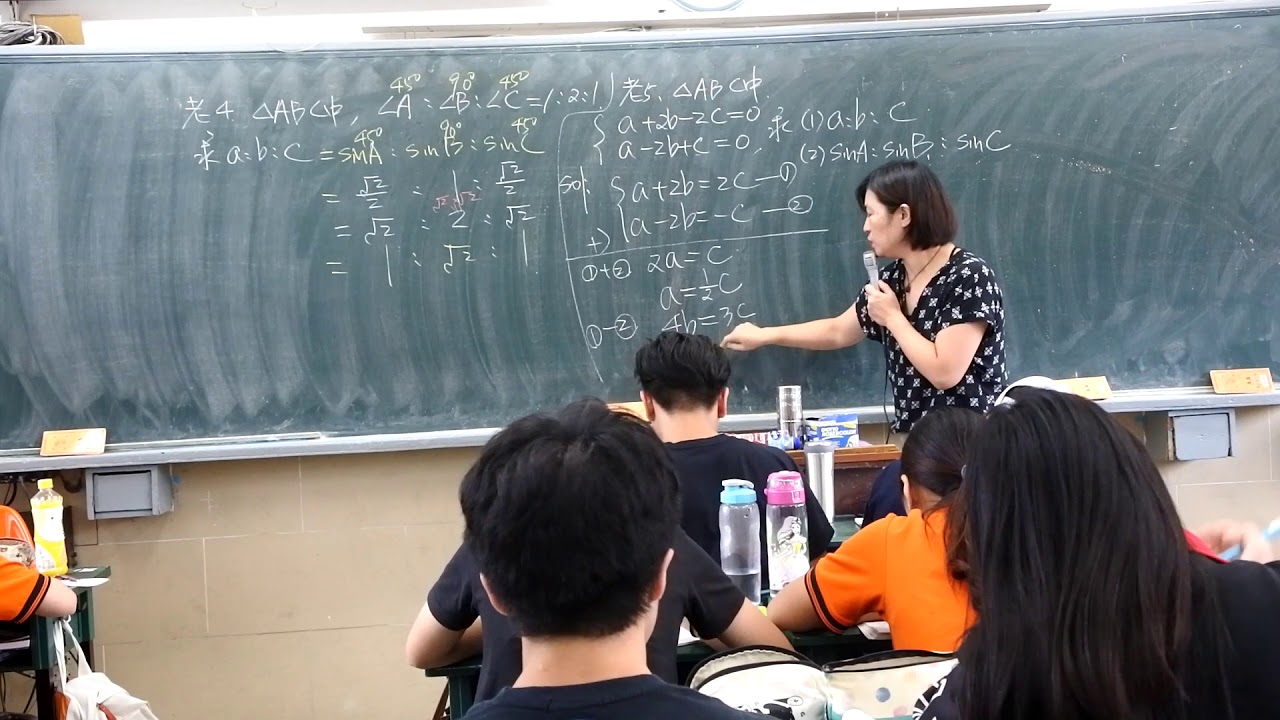 老4. △ABC中, ∠A:∠B:∠C=1:2:1
45° 90° 45°
求 a:b:c = sinA : sinB : sinC
45° 90° 45°
= √2/2 : 1 : √2/2
= √2 : 2 : √2
√2·√2
= 1 : √2 : 1
老5. △ABC中
{ a+2b-2c=0
a-2b+c=0, 求 (1) a:b:c
(2) sinA:sinB:sinC
Sol: { a+2b=2c—①
+) a-2b=-c—②
①+② 2a=c
a=½c
①-② 4b=3c